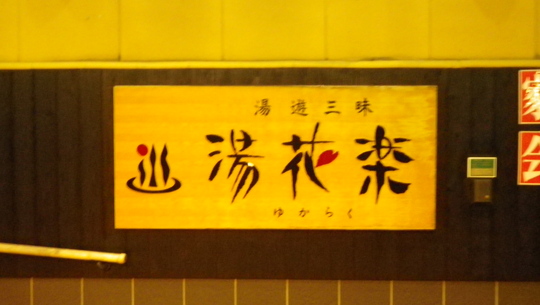 湯遊三昧
湯花楽
ゆからく